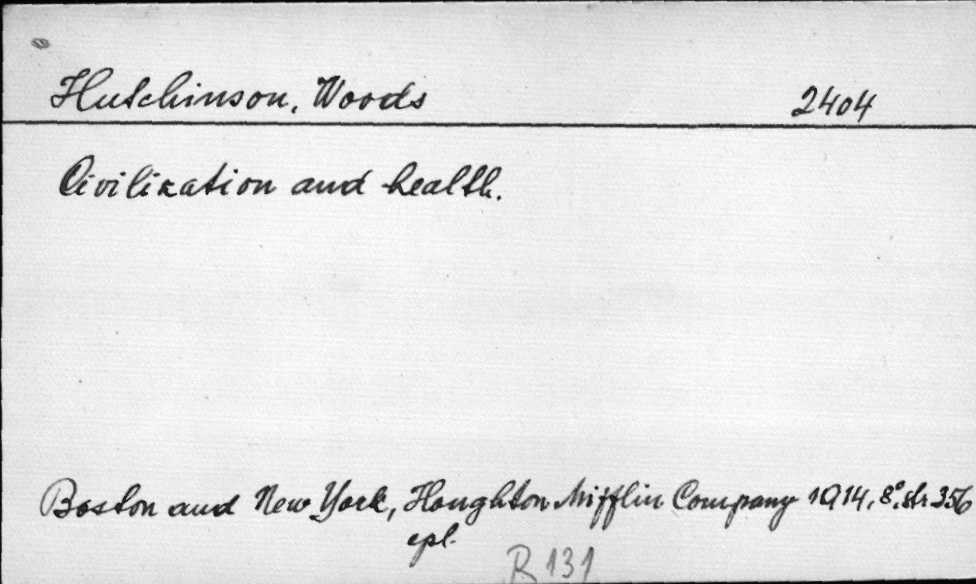 Hutchinson, Woods 2404
Civilization and health.
Boston and New York, Houghton Mifflin Company 1914, 8°. str. 356
epl.
R 131